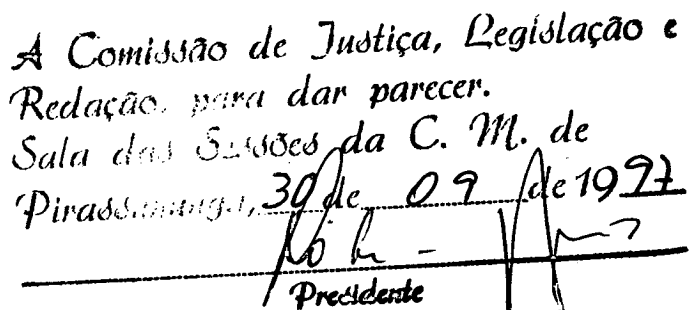 A Comissão de Justiça, Legislação e
Redação, para dar parecer.
Sala das Sessões da C. M. de
Pirassununga, 30 de 09 de 1997
Presidente